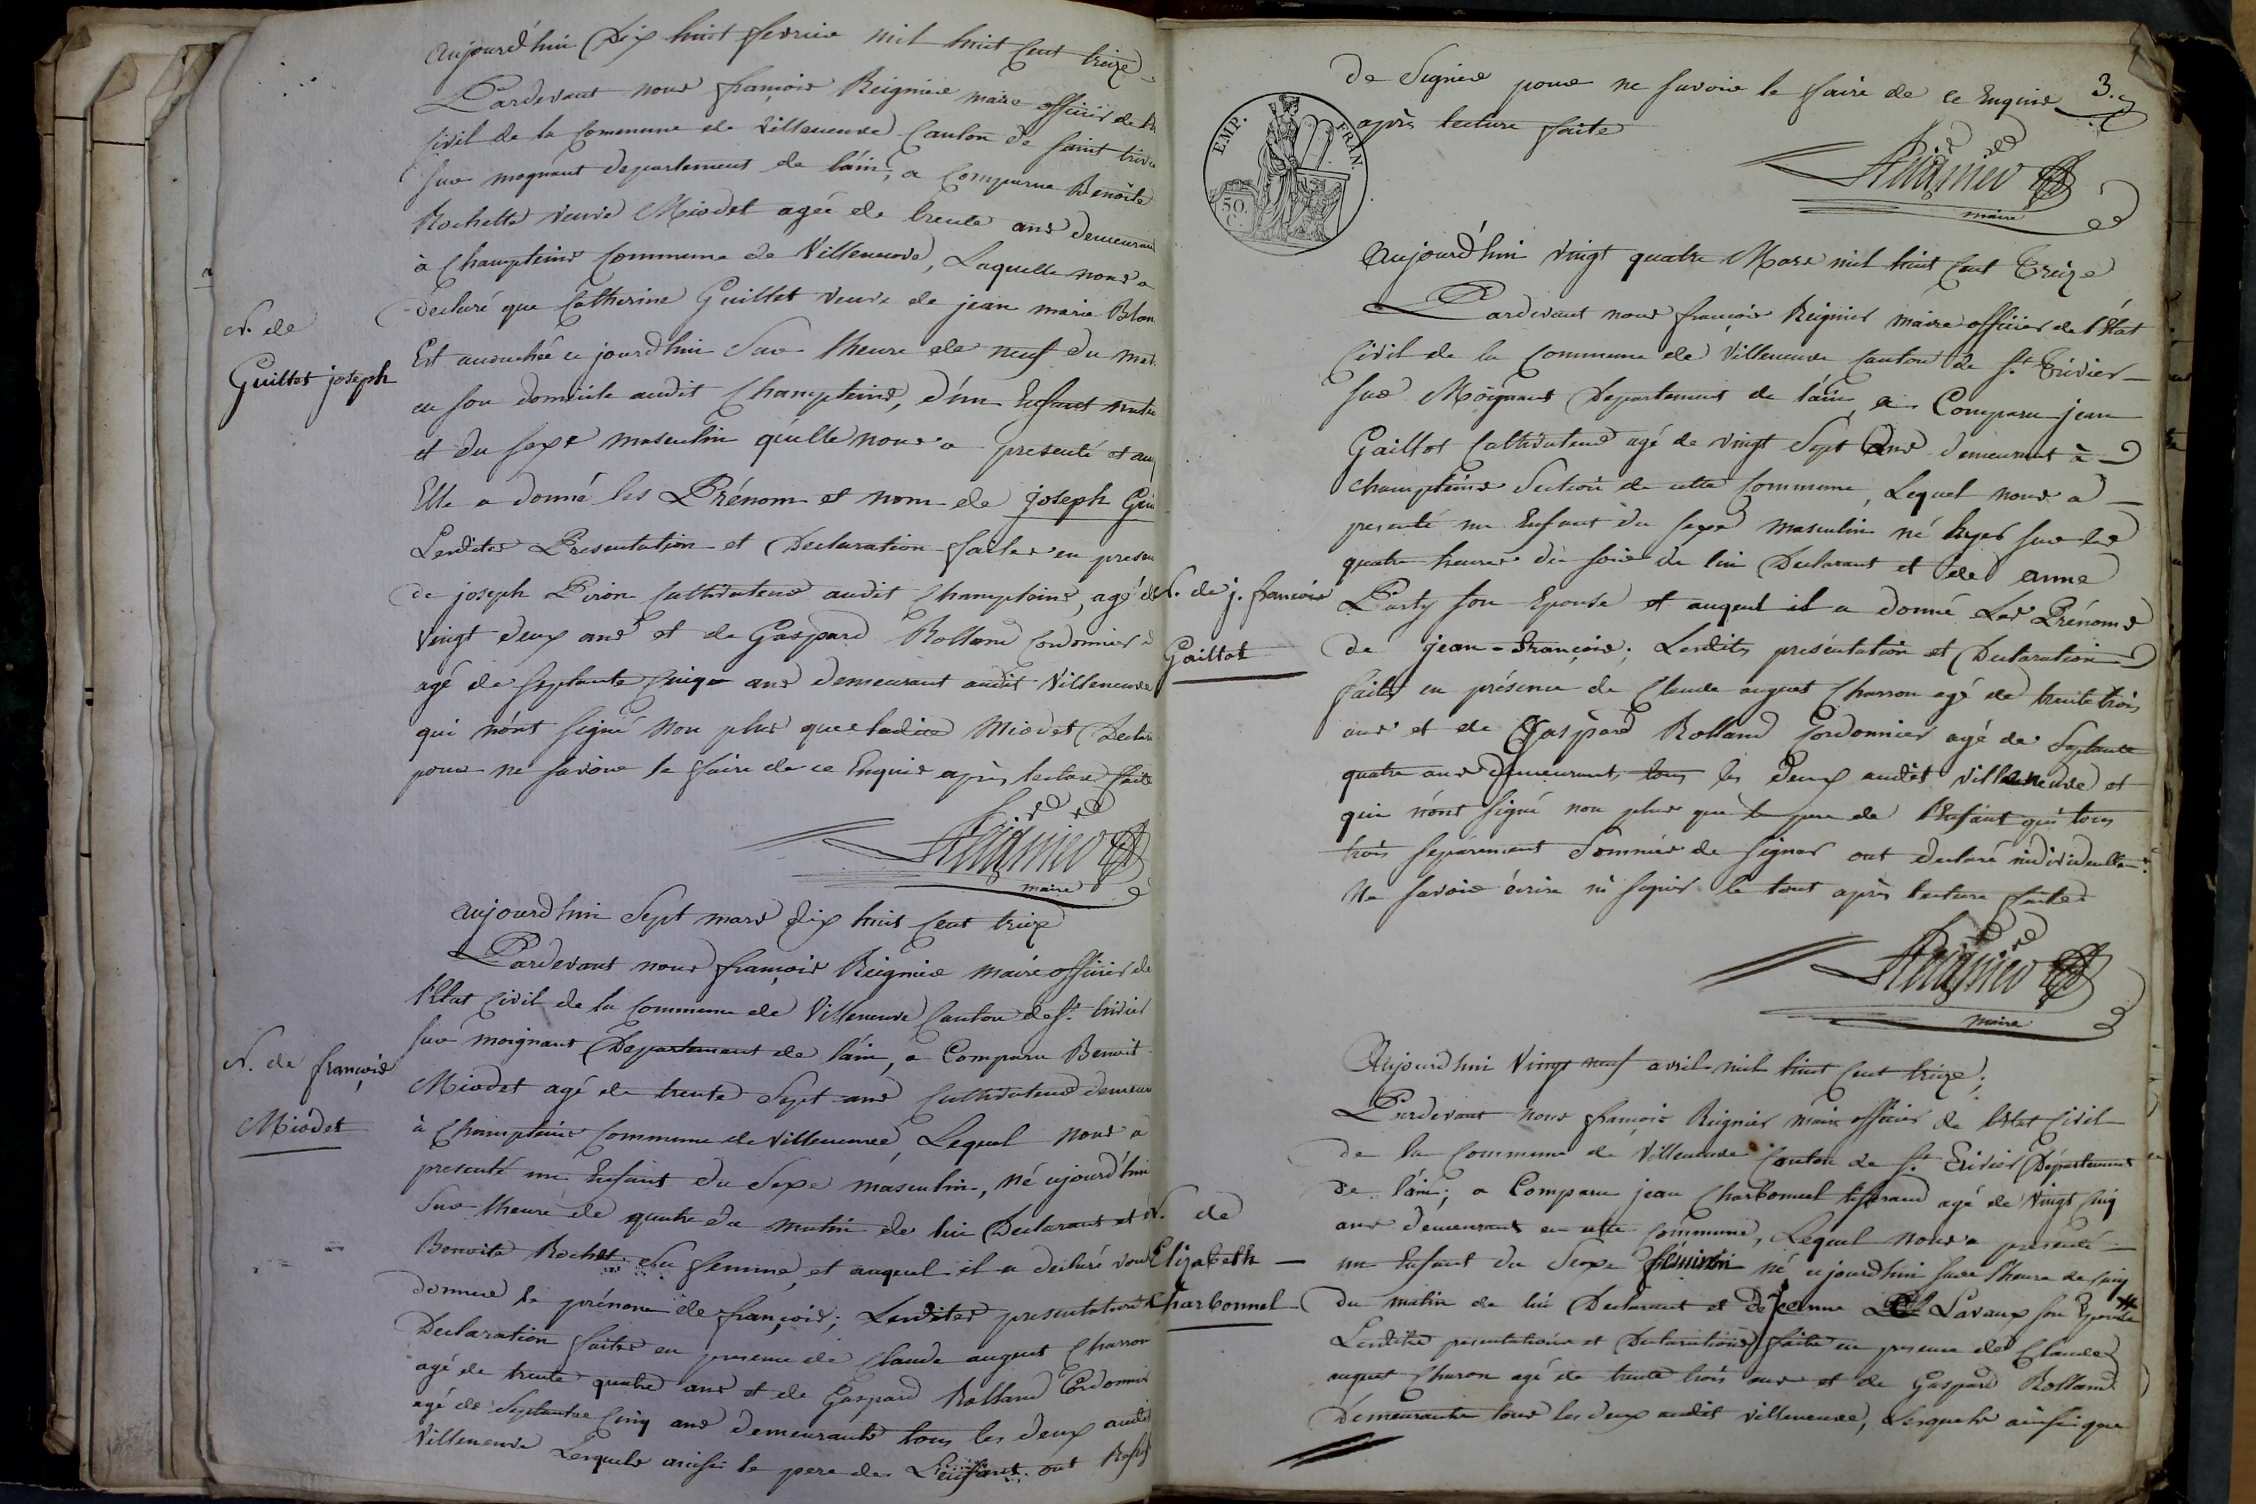 aujourd'hui Dix huit fevrier mil huit Cent treize
Pardevant nous françois Reignier maire officier de
Civil de la Commune de Villeneuve Canton de saint
sur mognant departement de láin, a Comparue Benoite
Rochette veuve Miodet agée de trente ans
à Champteins Commune de Villeneuve, Laquelle nous a
declaré que Catherine Guillet veuve de jean marie
N. de
Guillet joseph
Est acouchée ce jourdhui Sur lheure de neuf du
en son domicile audit Champteins, d'un Enfant
et du sexe masculin quélle nous a presenté et
Elle a donné les Prénom et nom de joseph
Lesdites Presentation et Declaration faites en
de joseph Piron Cultivateur audit Champteins, agé de
vingt deux ans et de Gaspard Rolland Cordonnier
agé de septante Cinq ans demeurant audit Villeneuve
qui nónt signé non plus que ladite Miodet
pour ne savoir le faire de ce Enquis après lecture faite
Reignier
maire
aujourdhui Sept mars dix huit Cent treize
Pardevant nous françois Reignier maire officier de
l'Etat Civil de la Commune de Villeneuve Canton de St. trivier
sur moignant Departement de láin, a Comparu Benoit
N. de françois
Miodet
Miodet agé de trente Sept ans Cultivateur
à Champteins Commune de Villeneuve, Lequel nous a
presenté un Enfant du Sexe masculin, né ajourd'hui
Sur lheure de quatre du matin de lui Declarant et
Benoite Rochet sa femme, et auquel il a declaré vouloir
donner le prénom de françois; Lesdites presentation
Declaration faites en presence de Claude auguet Charron
agé de trente quatre ans et de Gaspard Rolland Cordonnier
agé de Septantre Cinq ans demeurants tous les deux audit
Villeneuve Lesquels ainsi le pere de L'enfant ont
3.
de Signer pour ne savoir le faire de ce Enquis
après lecture faite
EMP. FRAN.
50.
Reignier
maire
Aujourd'hui vingt quatre Mars mil huit Cent Treize
Pardevant nous françois Reignier maire officier de l'Etat
Civil de la Commune de Villeneuve Canton de St Trivier
sur Moignans Departement de láin, a Comparu jean
Gaillot Cultivateur agé de vingt Sept ans demeurant à
champteins Section de cette Commune, Lequel nous a
presenté un Enfant du sexe masculin né hyer sur les
quatre heures du soir de lui Declarant et de anne
N. de j. françois
Gaillot
Party son Epouse et auquel il a donné Les Prénoms
de jean-françois; Lesdites présentation et Declaration
faites en présence de Claude auguet Charron agé de trente trois
ans et de Gaspard Rolland Cordonnier agé de Septante
quatre ans demeurants tous les Deux audit villeneuve et
qui nónt signé non plus que le pere de l'Enfant qui tous
trois séparément Sommés de signer ont declaré
Ne savoir écrire ni signer le tout après lecture faite
Reignier
maire
Aujourdhui Vingt neuf avril mil huit Cent treize;
Pardevant nous françois Reignier maire officier de l'Etat Civil
de la Commune de Villeneuve Canton de St. Trivier Département
de láin; a Comparu jean Charbonnel tisserand agé de Vingt Cinq
ans demeurant en cette commune, Lequel nous a presenté
N. de
Elizabeth
Charbonnel
un Enfant du Sexe feminin né ajourdhui sur l'heure de Cinq
du matin de lui Declarant et de jeanne Lavaux son Epouse #
Lesdites presentations et Declarations faites en presence de Claude
auguet Charon agé de trente trois ans et de Gaspard Rolland
Demeurants tous les deux audit villeneuve, Lesquels ainsi que